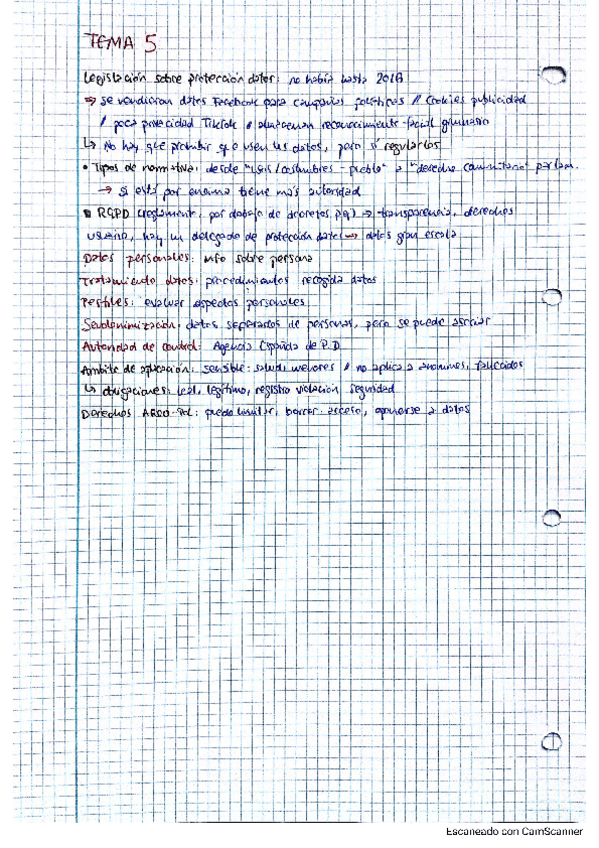 TEMA 5
Legislación sobre protección datos: no había hasta 2018
→ se vendieron datos Facebook para campañas políticas // Cookies publicidad
/ poca privacidad TikTok / almacenan reconocimiento facial gimnasio
↳ No hay que prohibir que usen tus datos, pero sí regularlos
• Tipos de normativa: desde "usos/costumbres - pueblo" a "derecho comunitario" parlam.
→ si está por encima tiene más autoridad
• RGPD (reglamento, por debajo de decretos) → transparencia, derechos
usuario, hay un delegado de protección datos → datos gran escala
Datos personales: info sobre persona
Tratamiento datos: procedimientos recogida datos
Perfiles: evaluar aspectos personales
Seudonimización: datos separados de personas, pero se puede asociar
Autoridad de control: Agencia Española de P.D
Ámbito de aplicación: sensible: salud, menores / no aplica a anónimos, fallecidos
↳ obligaciones: leal, legítimo, registro violación seguridad
Derechos ARCO-POL: puedo limitar, borrar, acceso, oponerse a datos
Escaneado con CamScanner